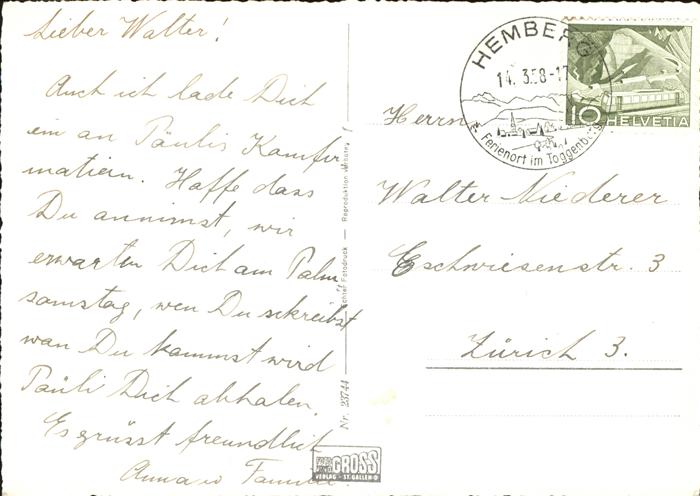 Lieber Walter!
Auch ich lade Dich
ein an Päulis Konfir
mation. Hoffe dass
Du annimst, wir
erwarten Dich am Palm
samstag, wen Du schreibst
wan Du kommst wird
Päuli Dich abhalen.
Es grüsst freundlich
Anna u Familie
Echter Fotodruck — Reproduktion verboten
Nr. 23744
FOTO GROSS
VERLAG - ST. GALLEN O
HEMBERG
14. 3.58-17
Ferienort im Toggenburg
10 HELVETIA
Herrn
Walter Niederer
Eschwiesenstr. 3
Zürich 3.